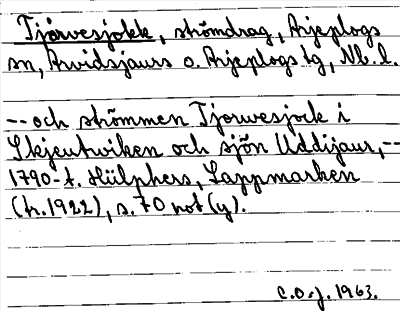 Tjårvesjokk, strömdrag, Arjeplogs
sn, Arvidsjaurs o. Arjeplogs tg, Nb. l.
-- och strömmen Tjorwesjock i
Skjeutwiken och sjön Uddijaur, --
1790-t. Hülphers, Lappmarken
(tr. 1922), s. 70 not (y).
C.O.J. 1963.